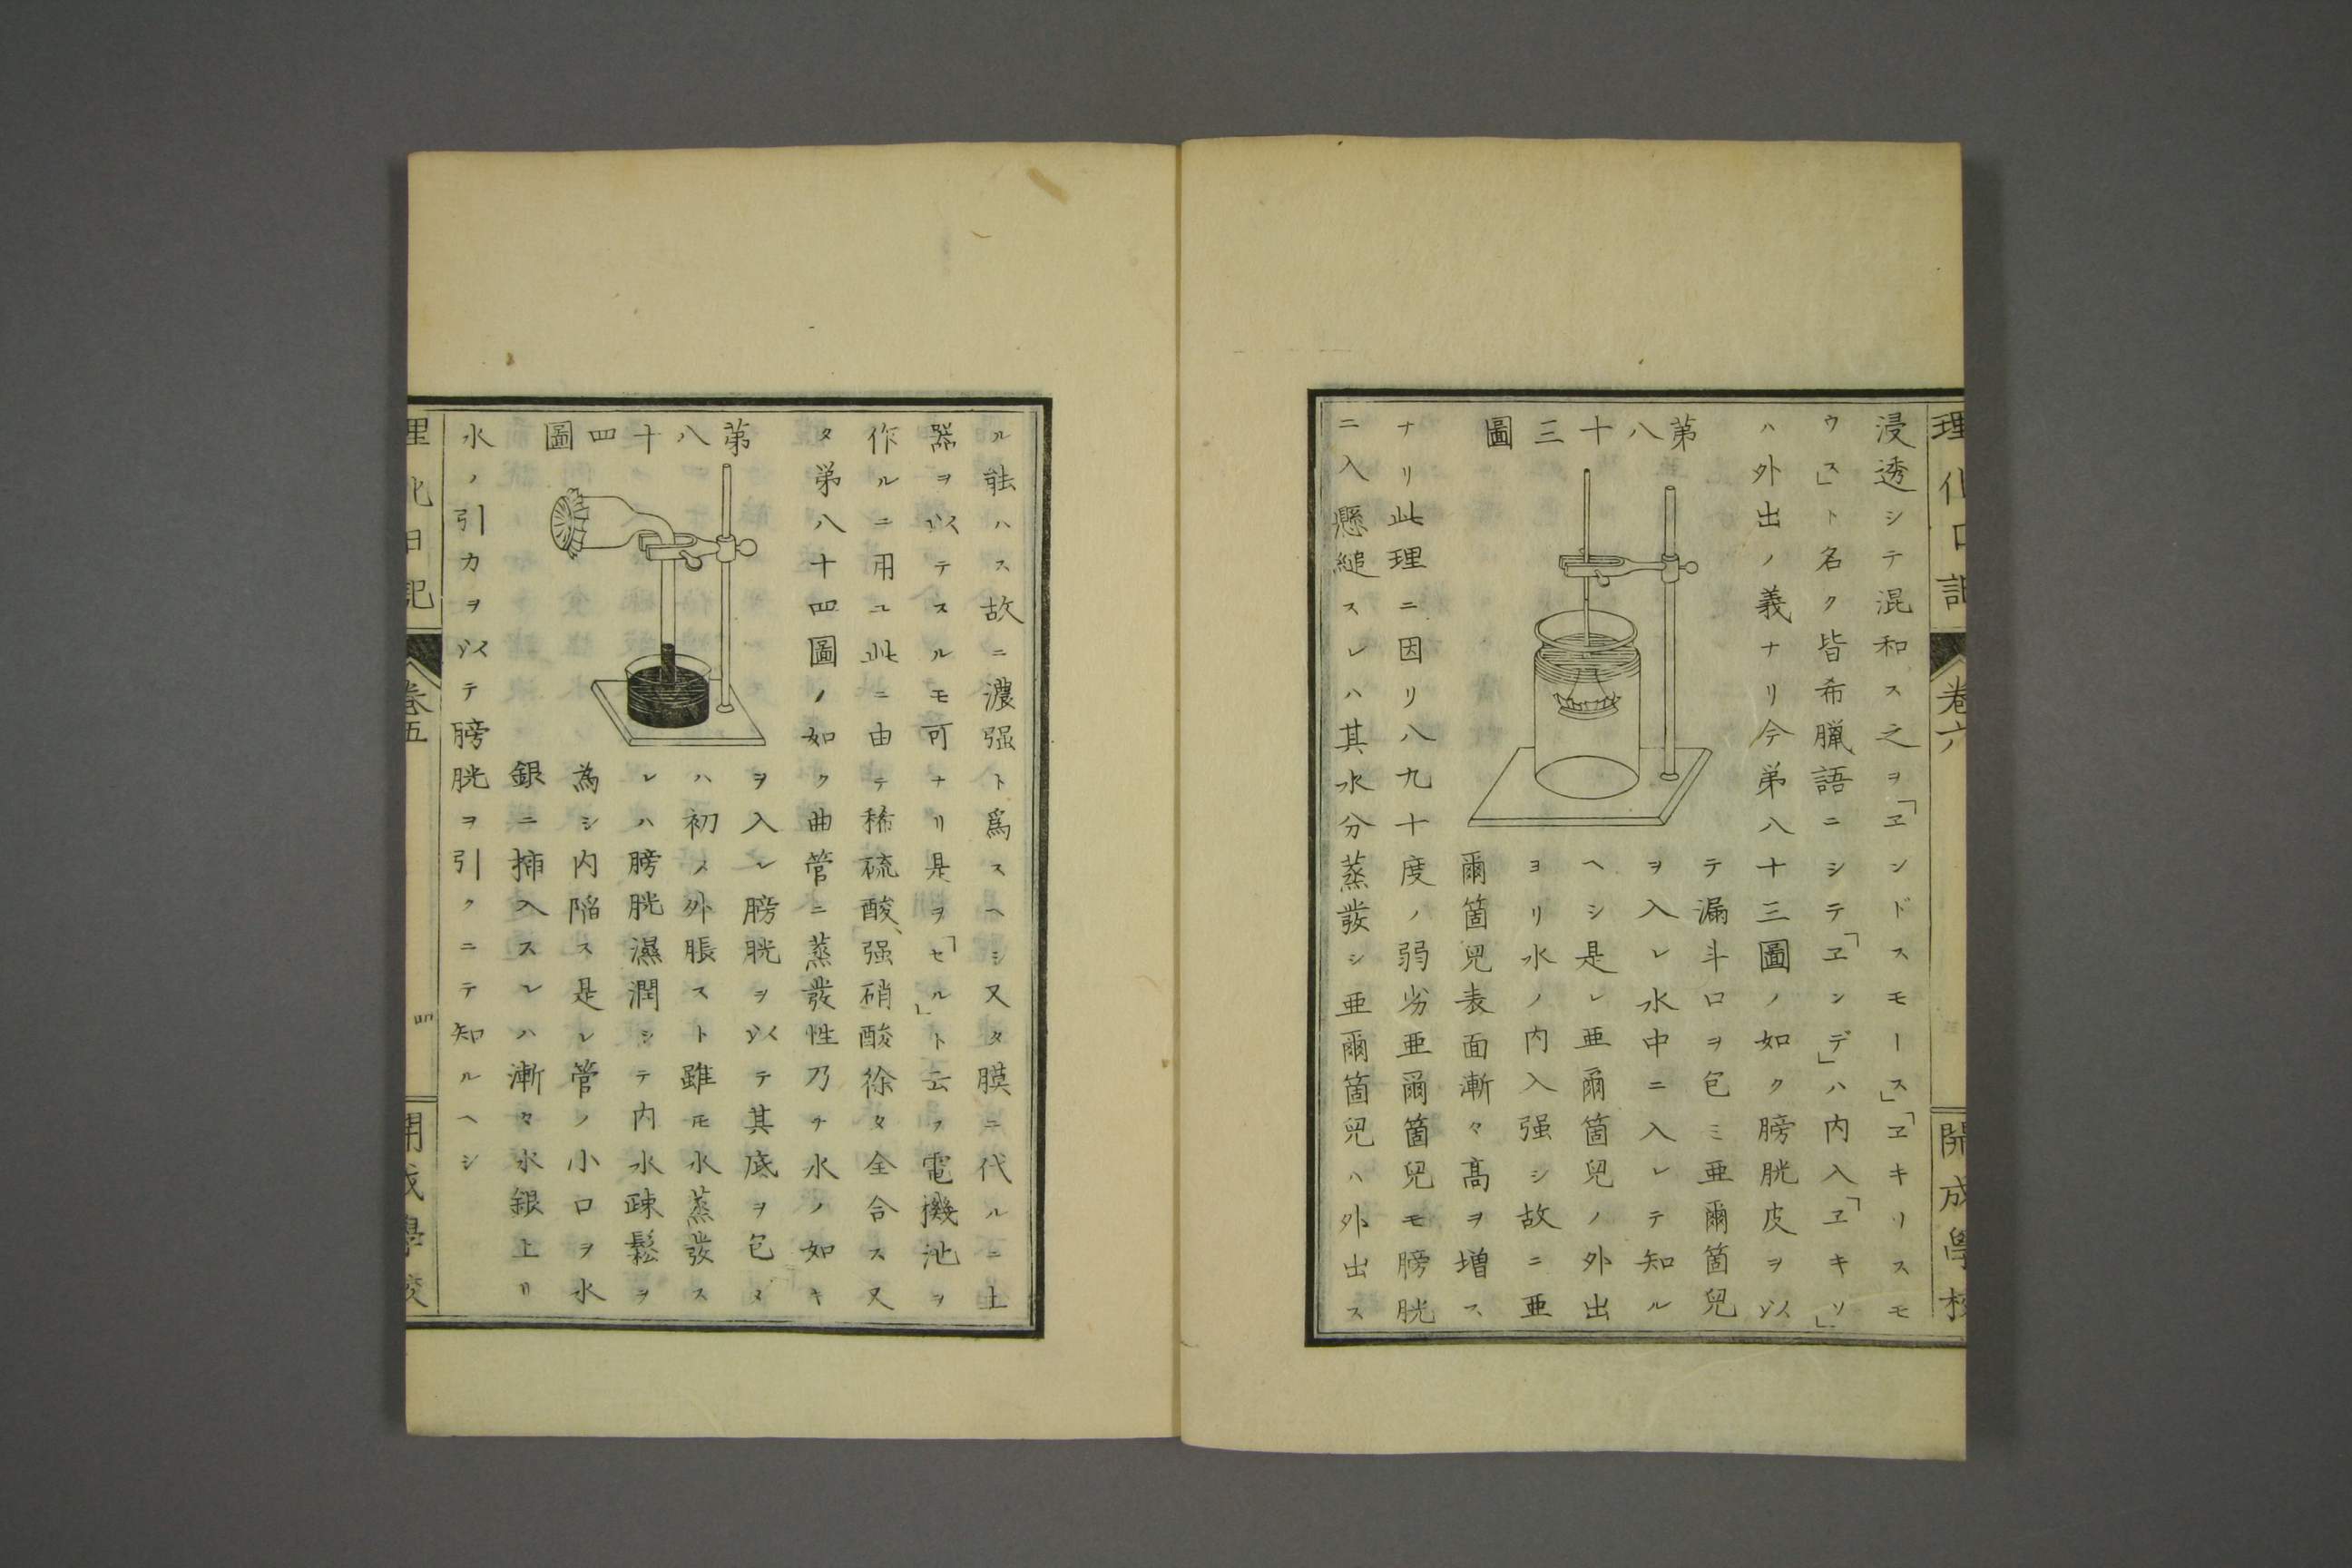 理化日記
卷六
開成學校
浸透シテ混和ス之ヲ「ヱンドスモース」「ヱキリスモ
ウス」ト名ク皆希臘語ニシテ「ヱンデ」ハ内入「ヱキソ」
ハ外出ノ義ナリ今第八十三圖ノ如ク膀胱皮ヲ以
テ漏斗口ヲ包ミ亜爾箇兒
ヲ入レ水中ニ入レテ知ル
ヘシ是レ亜爾箇兒ノ外出
ヨリ水ノ内入强シ故ニ亜
爾箇兒表面漸々髙ヲ増ス
第八十三圖
ナリ此理ニ因リ八九十度ノ弱劣亜爾箇兒モ膀胱
ニ入懸縋スレハ其水分蒸發シ亜爾箇兒ハ外出ス
ル能ハス故ニ濃强ト爲スヘシ又タ膜ニ代ルニ土
器ヲ以テスルモ可ナリ是ヲ「セル」ト云フ電機池ヲ
作ルニ用ユ此ニ由テ稀硫酸、强硝酸徐タ全合ス又
タ第八十四圖ノ如ク曲管ニ蒸發性乃チ水ノ如キ
ヲ入レ膀胱ヲ以テ其底ヲ包ヌ
ハ初メ外脹スト雖モ水蒸發ス
レハ膀胱濕潤シテ内水疎鬆ヲ
為シ内陷ス是レ管ノ小口ヲ水
銀ニ挿入スレハ漸々水銀上リ
第八十四圖
水ノ引カヲ以テ膀胱ヲ引クニテ知ルヘシ
理化日記
卷五
四
開成學校